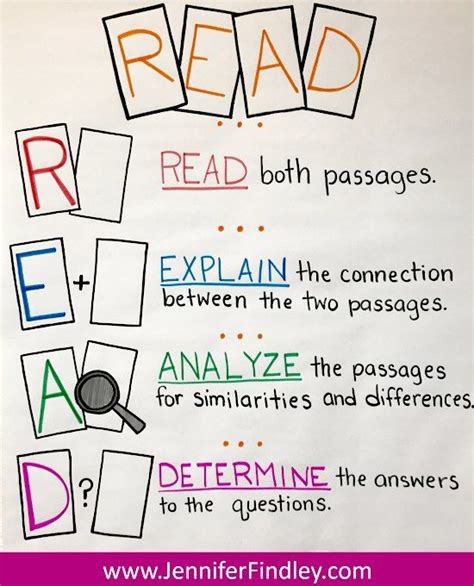 READ
R
READ both passages.
E +
EXPLAIN the connection
between the two passages.
A
ANALYZE the passages
for similarities and differences.
D ?
DETERMINE the answers
to the questions.
www.JenniferFindley.com